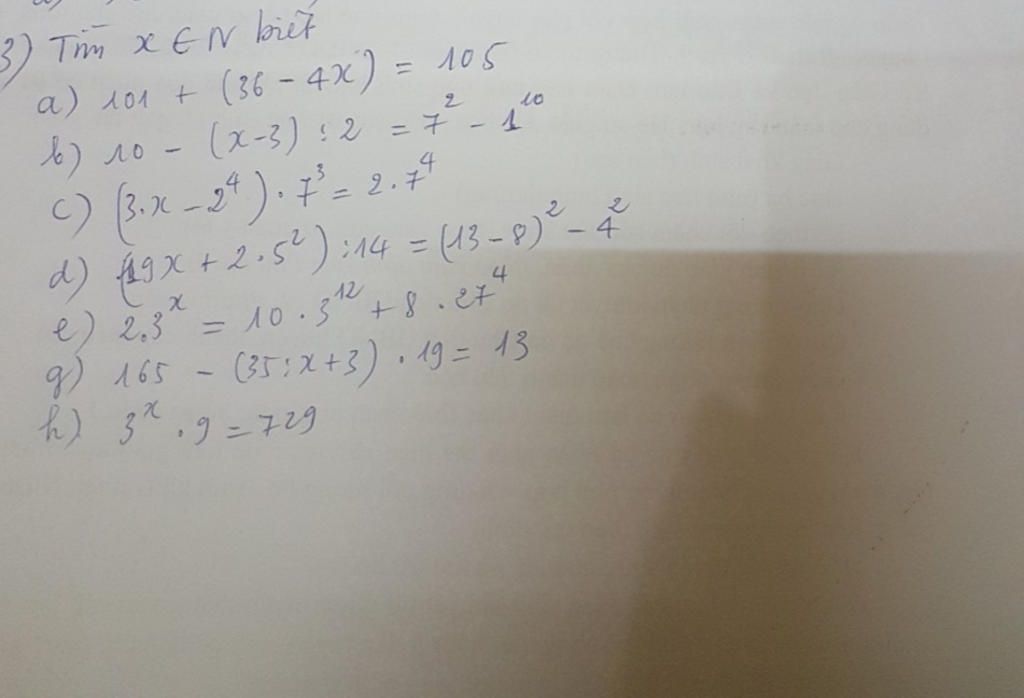 3) Tìm x ∈ N biết
a) 101 + (36 - 4x) = 105
b) 10 - (x-3) : 2 = 7² - 1¹⁰
c) (3.x - 2⁴) . 7³ = 2 . 7⁴
d) (19x + 2 . 5²) : 14 = (13 - 8)² - 4²
e) 2.3ˣ = 10 . 3¹² + 8 . 27⁴
g) 165 - (35 : x + 3) . 19 = 13
h) 3ˣ . 9 = 729